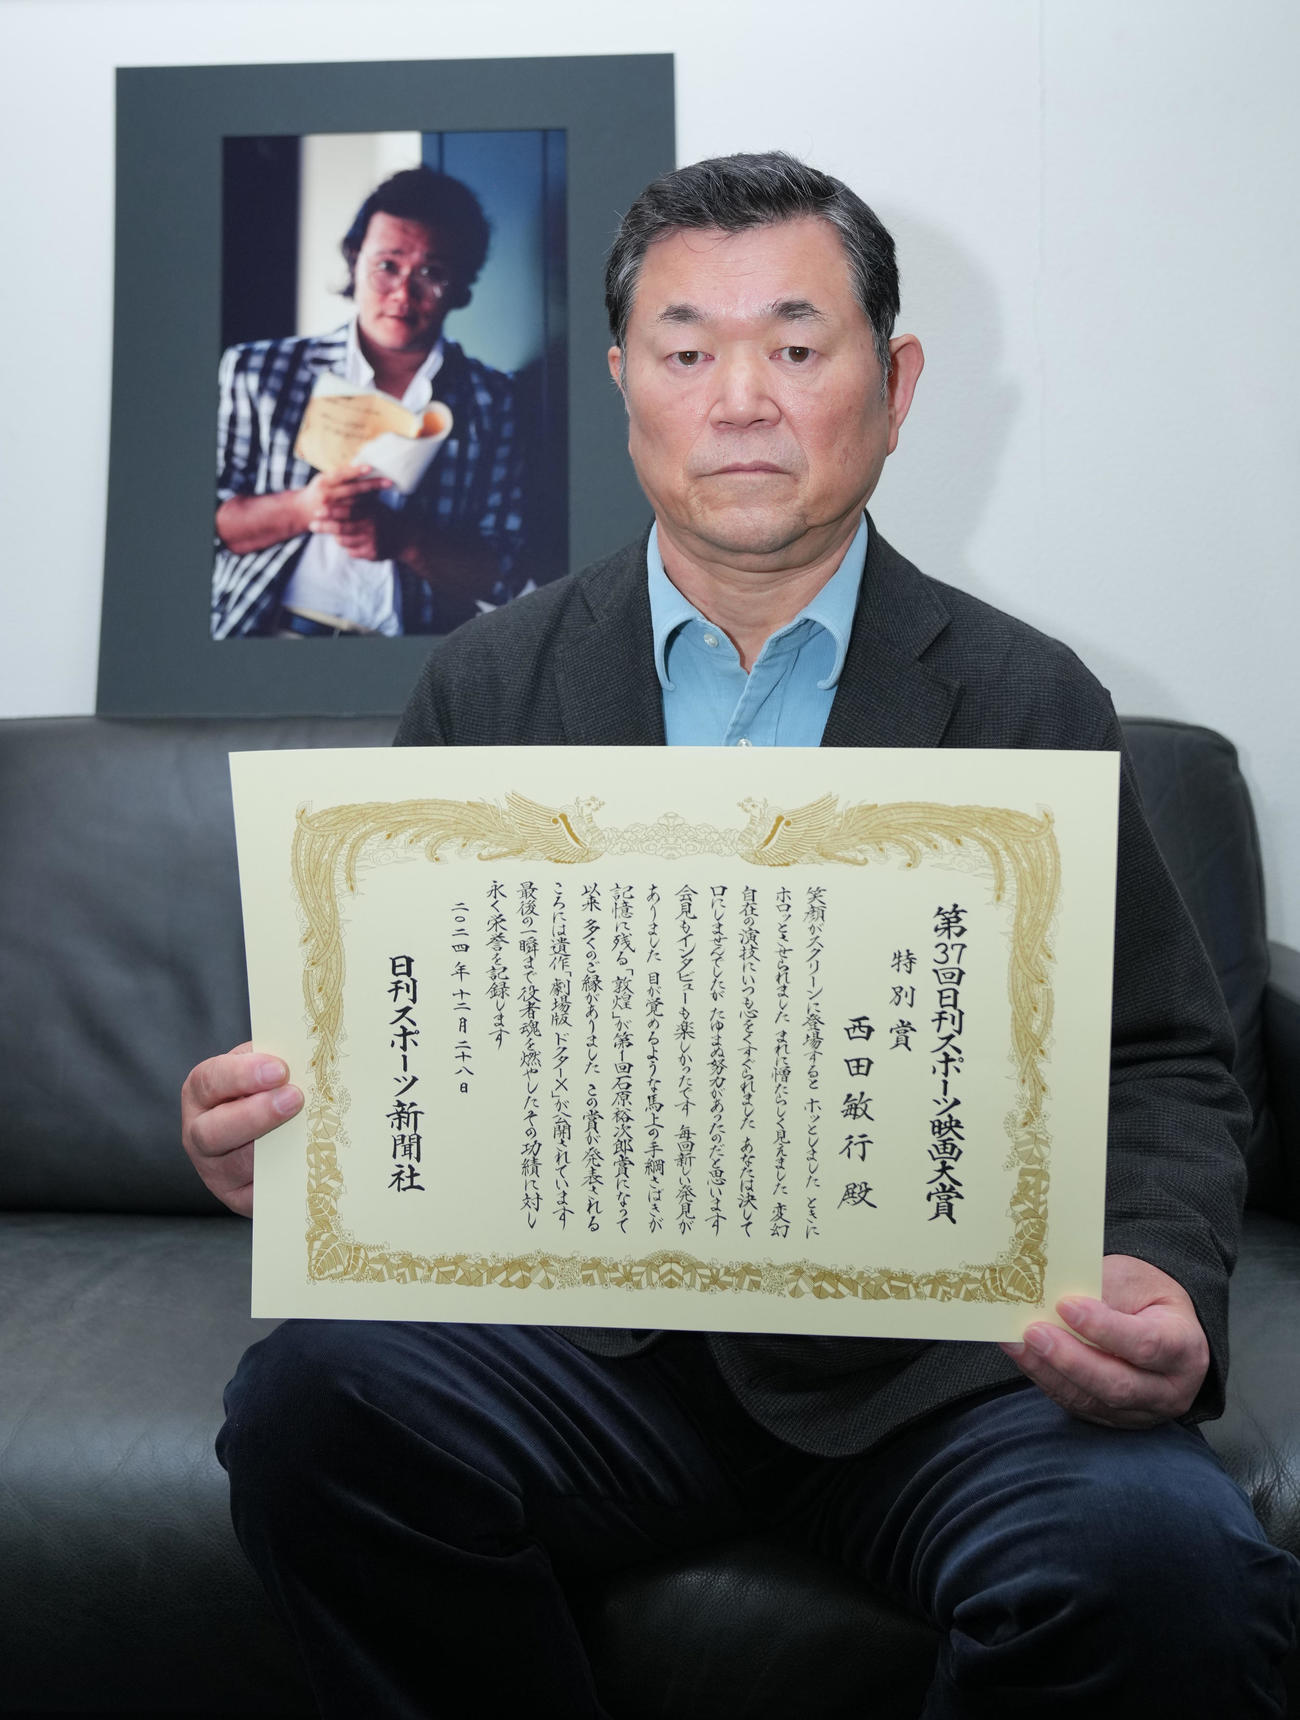 第37回日刊スポーツ映画大賞
特別賞
西田敏行殿
笑顔がスクリーンに登場すると ホッとしました ときに
ホロッとさせられました まれに憎たらしく見えました 変幻
自在の演技にいつも心をくすぐられました あなたは決して
口にしませんでしたが たゆまぬ努力があったのだと思います
会見もインタビューも楽しかったです 毎回新しい発見が
ありました 目が覚めるような馬上の手綱さばきが
記憶に残る「敦煌」が第1回石原裕次郎賞になって
以来 多くのご縁がありました この賞が発表される
ころには遺作「劇場版 ドクターX」が公開されています
最後の一瞬まで役者魂を燃やしたその功績に対し
永く栄誉を記録します
二〇二四年十二月二十八日
日刊スポーツ新聞社